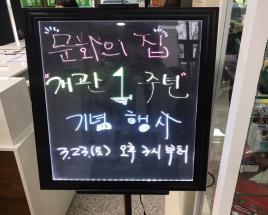 "문화의 집
"개관 1 주년"
기념 행사
3.23.(토) 오후 3시 부터